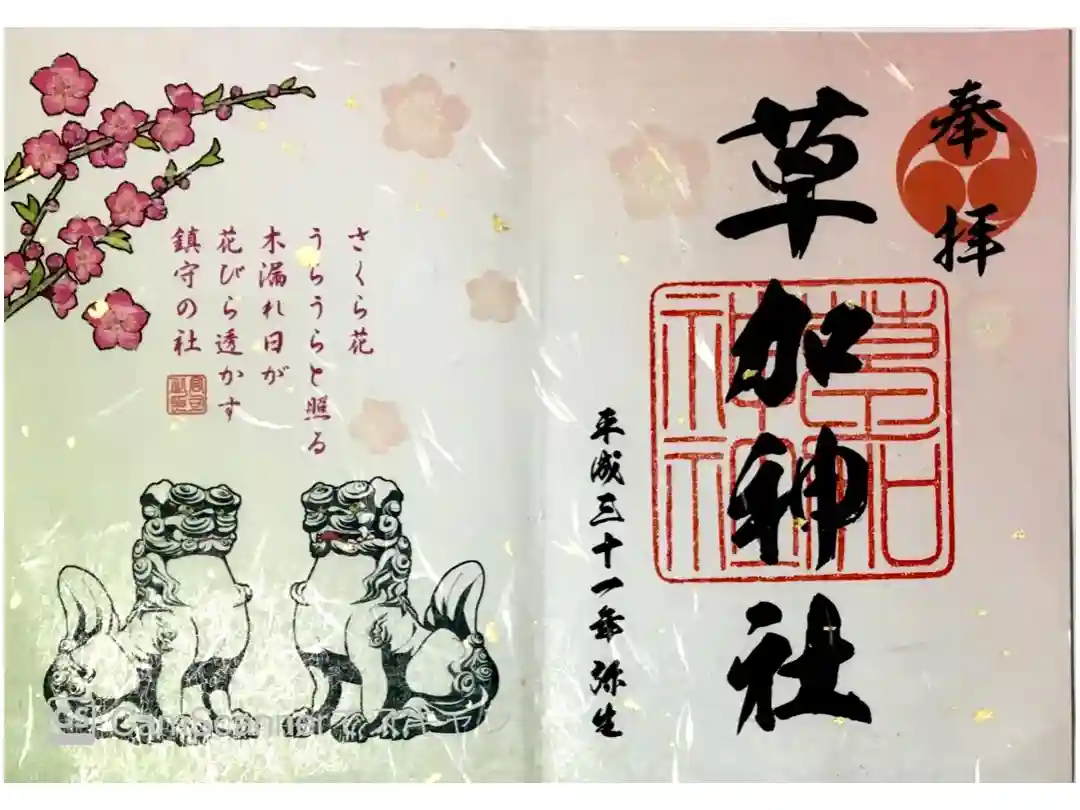 奉拝
草加神社
草加神社
平成三十一年 弥生
さくら花
うらうらと照る
木漏れ日が
花びら透かす
鎮守の社
CamScanner でスキャン